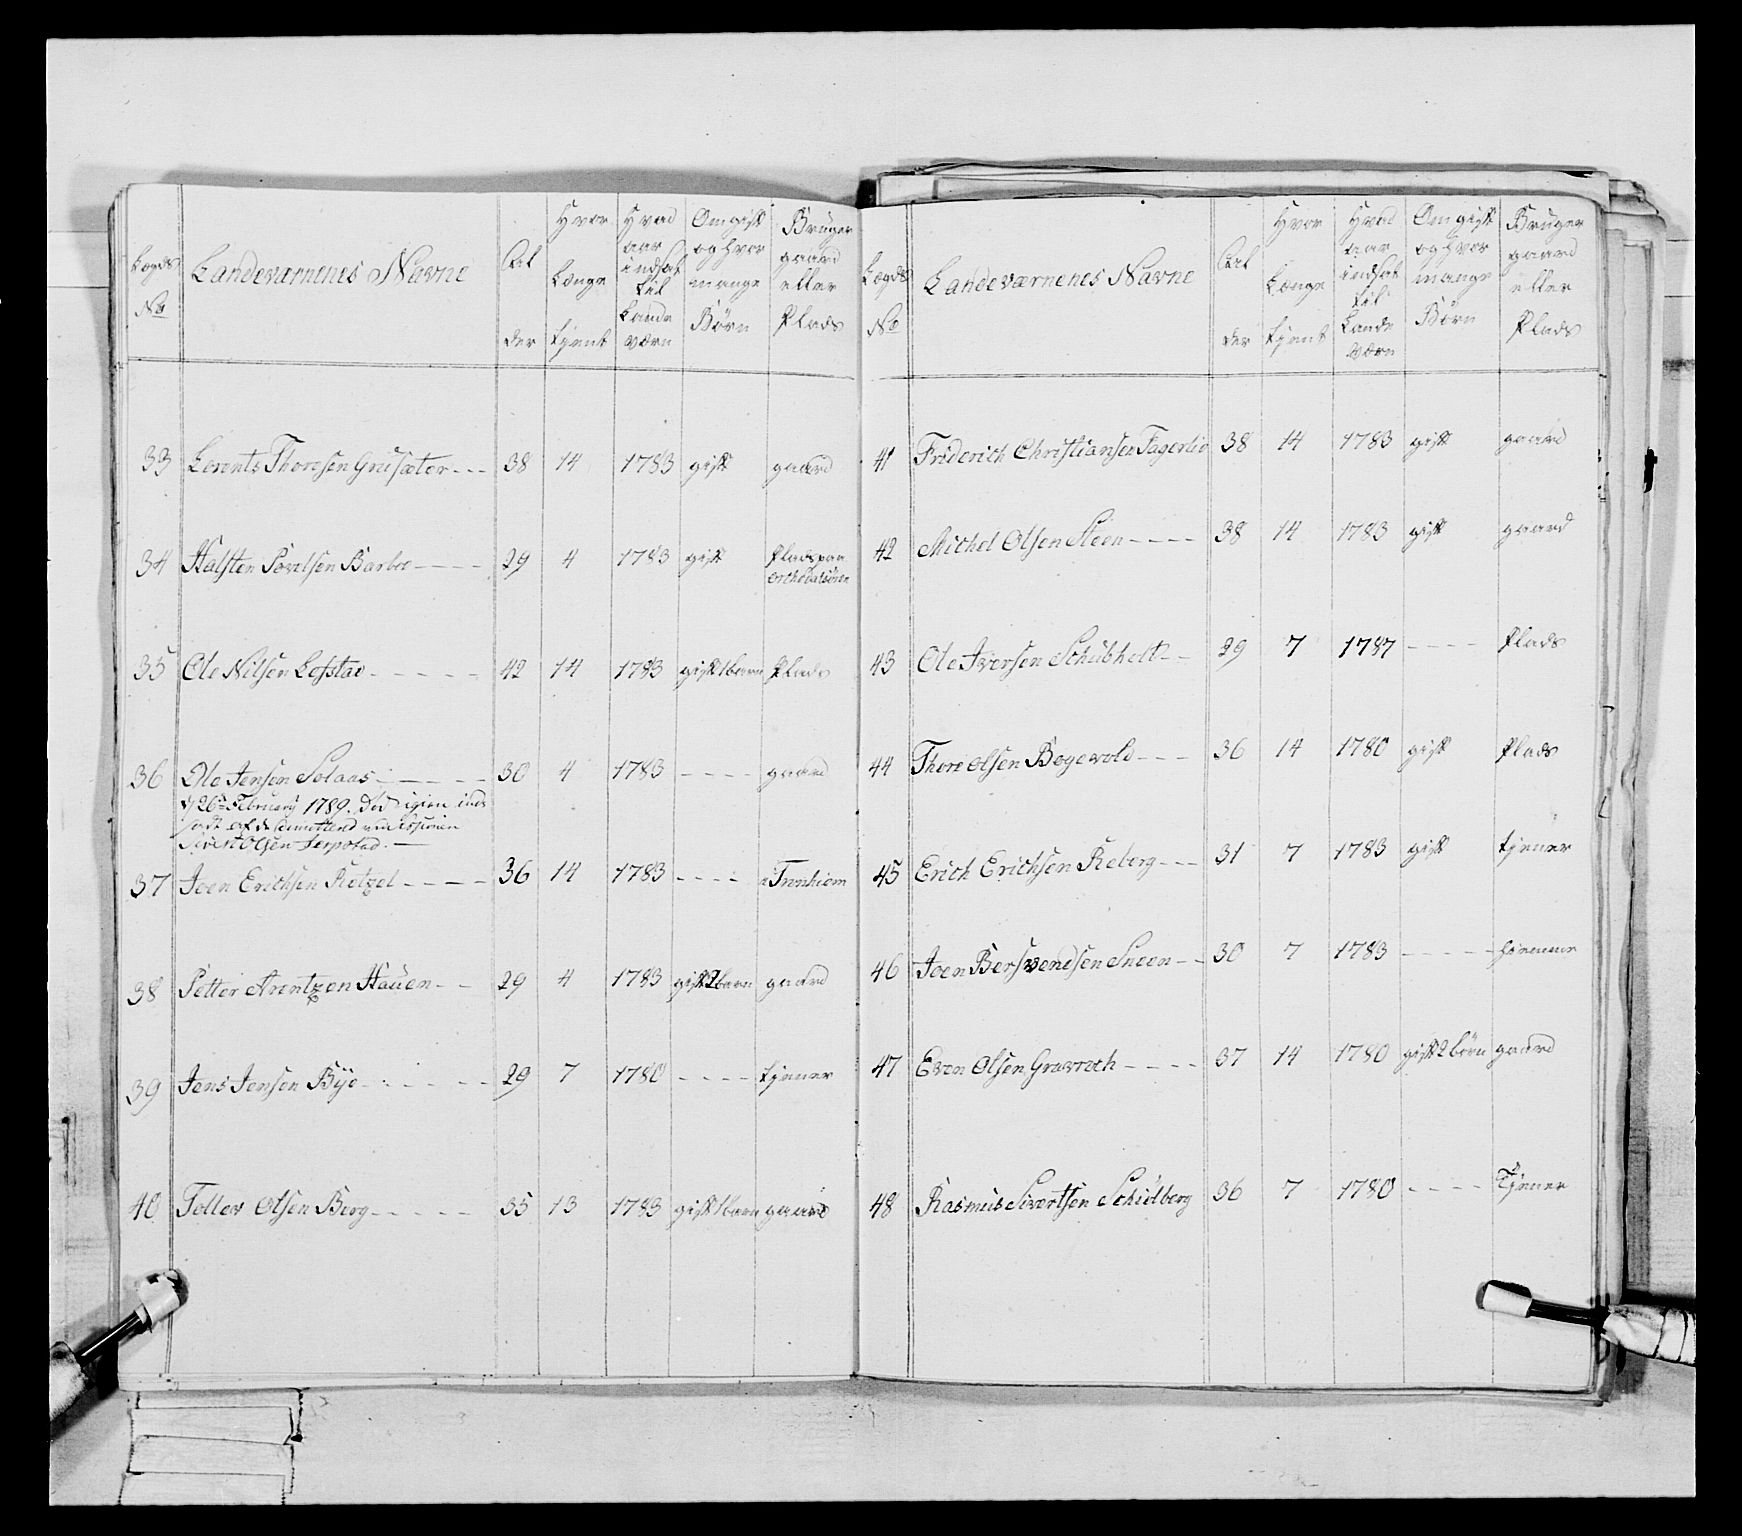 Lægds No | Landeværnenes Navne | Alder | Hvor Længe tjent | Hvad aar indsat til Lande værn | Om gift og hvor mange Børn | Bruger gaard eller Plads
33 Lorents Thoresen Grusæter --- 38 14 1783 gift gaard
34 Halsten Povelsen Barboe ---- 29 4 1783 gift Pladspaa
35 Ole Nilsen Lofstav ----- 42 14 1783 gift 1 barn Plads
36 Ole Jensen Solaas ----- 30 4 1783 ---- gaard
d 26de February 1789. død igien ind
satt af
Sivert Olsen
37 Joen Erichsen Rotzel ---- 36 14 1783 ---- i Tronhiem
38 Petter Arentzen Hauen -- 29 4 1783 gift 2 barn gaard
39 Jens Jensen Bye ------ 29 7 1780 ---- tjener
40 Tollev Olsen Berg ----- 35 13 1783 gift 1 barn gaard
Lægds No | Landeværnenes Navne | Alder | Hvor Længe tjent | Hvad aar indsat til Lande Værn | Om gift og hvor mange Børn | Bruger gaard eller Plads
41 Friderich Christiansen Fagerlie 38 14 1783 gift gaard
42 Michel Olsen Steen ---- 38 14 1783 gift gaard
43 Ole Iversen Schubholt -- 29 7 1787 ---- Plads
44 Thore Olsen Bogevold --- 36 14 1780 gift Plads
45 Erich Erichsen Reberg --- 31 7 1783 gift tjener
46 Joen Bersvendsen Sneen -- 30 7 1783 ---- tjenner
47 Even Olsen Gravrach ---- 37 14 1780 gift 2 børn gaard
48 Rasmus Sivertsen Schiølberg 36 7 1780 ---- Tjener